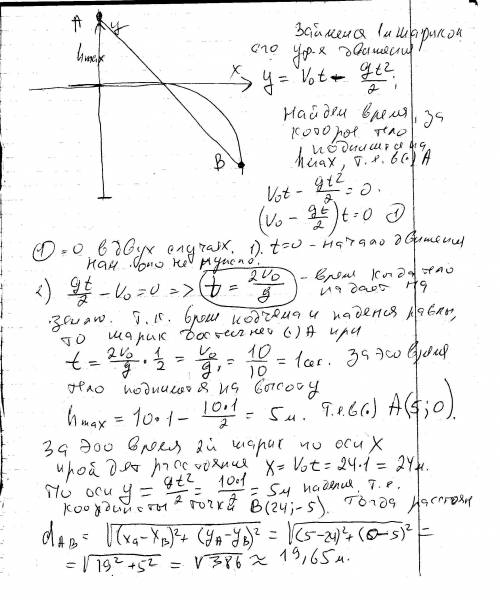 A
y
hmax
x
B
Займемся 1м шариком
его ур-я движения
y = V₀t - gt²/2;
Найдем время, за
которое тело
поднимется на
hmax, т.е. в(.) A
V₀t - gt²/2 = 0.
(V₀ - gt/2)t = 0 ①
① = 0 в двух случаях. 1). t=0 - начало движения
нам оно не нужно.
2) gt/2 - V₀ = 0 => t = 2V₀/g - время когда тело
падает на
землю. Т.к. время подъема и падения равны,
то шарик достигнет (.) A при
t = 2V₀/g · 1/2 = V₀/g = 10/10 = 1сек. За это время
тело поднимется на высоту
hmax = 10·1 - 10·1/2 = 5м. Т.е. в(.) A(5;0).
За это время 2й шарик по оси X
пройдет расстояния X = V₀t = 24·1 = 24м.
По оси y = gt²/2 = 10·1/2 = 5м падения, т.е.
координаты точки B(24;-5). Тогда расстоян
dAB = √((xA-xB)²+(yA-yB)²) = √((5-24)²+(0-5)²) =
= √(19²+5²) = √386 ≈ 19,65м.